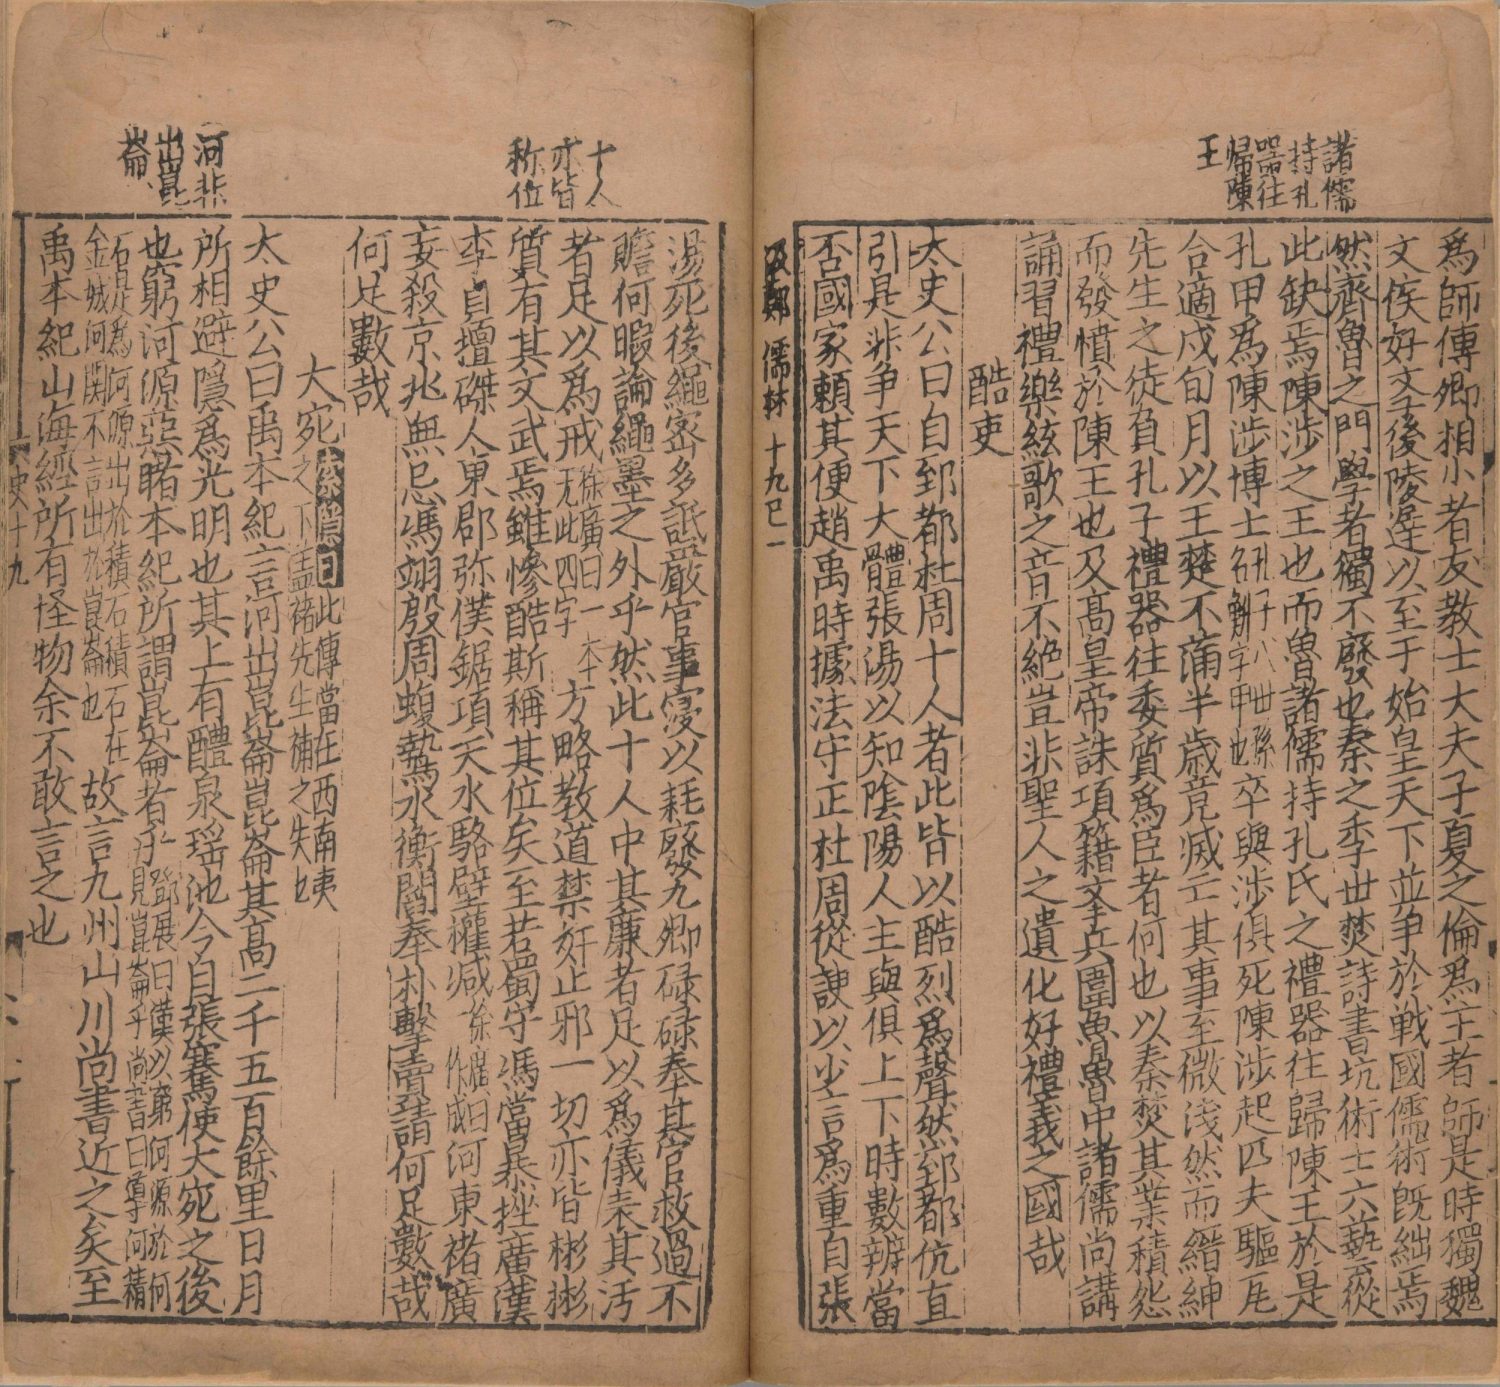 諸儒
持孔
器往
歸陳
王
為師傅卿相小者友教士大夫子夏之倫為王者師是時獨魏
文侯好文學後陵遲以至于始皇天下並爭於戰國儒術既絀焉
然齊魯之門學者獨不廢也秦之季世焚詩書坑術士六藝從
此缺焉陳涉之王也而魯諸儒持孔氏之禮器往歸陳王於是
孔甲為陳涉博士孔子八世孫名鮒字甲也卒與涉俱死陳涉起匹夫驅瓦
合適戍旬月以王楚不蒲半歲竟滅亡其事至微淺然而縉紳
先生之徒負孔子禮器往委質為臣者何也以秦焚其業積怨
而發憤於陳王也及髙皇帝誅項籍夲兵圍魯魯中諸儒尚講
誦習禮樂絃歌之音不絕豈非聖人之遺化好禮義之國哉
酷吏
太史公曰自郅都杜周十人者此皆以酷烈為聲然郅都伉直
引是非争天下大體張湯以知隂陽人主與俱上下時數辨當
否國家賴其便趙禹時據法守正杜周從諛以少言為重自張
汲鄭 儒林 十九巳一
十人
亦皆
称位
湯死後䋲宻多詆嚴官事寖以耗廢九卿碌碌奉其官救過不
贍何暇論䋲墨之外乎然此十人中其廉者足以為儀表其汚
者足以為戒徐廣曰一本无此四字方略教道禁奸止邪一切亦皆彬彬
質有其文武焉雖慘酷斯稱其位矣至若蜀守馮當暴挫廣漢
李貞擅磔人東郡弥僕鋸項天水駱壁㩲减徐廣曰一作成河東褚廣
妄殺京兆無忌馮翊殷周蝮鷙水衡閻奉朴擊賣請何足數哉
何足數哉
大宛索隱曰此傳當在西南夷之下盖褚先生補之失也
河非
出崑
崙
太史公曰禹本紀言河出崑崙崑崙其髙二千五百餘里日月
所相避隱為光明也其上有醴泉瑶池今自張騫使大宛之後
也窮河源惡睹本紀所謂崑崙者乎鄧展曰漢以窮河源於何見崑崙乎尚書曰導河積
石是為河源出於積石積石在金城河関不言出九崑崙也故言九州山川尚書近之矣至
禹本紀山海經所有怪物余不敢言之也
史十九